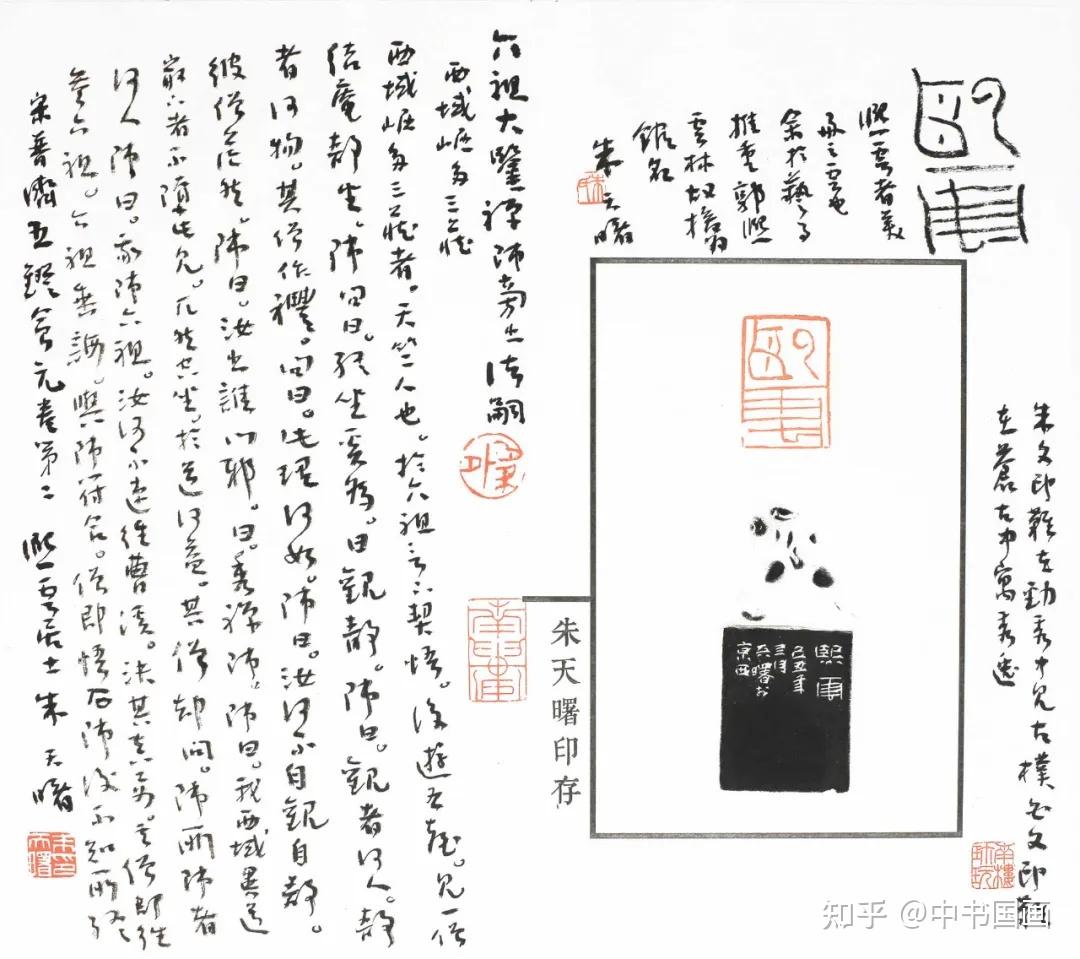 朱文印難在勁秀中見古樸白文印難
在蒼古中寓秀逸
熙雲
熙雲者美
余於藝事
推重郭熙
雲林故
館名
朱天曙
熙雲
熙雲
己丑年
三月
天曙於
京西
朱天曙印存
六祖大鑒禪師旁出法嗣
西域崛多三藏
西域崛多三藏者。天竺人也。於六祖言下契悟。後遊五臺。見一僧
結庵靜坐。師問曰。孤坐奚為。曰觀靜。師曰。觀者何人。靜
者何物。其僧作禮。問曰。此理何如。師曰。汝何不自觀自靜。
彼僧茫然。師曰。汝出誰門邪。曰。秀禪師。師曰。我西域異道
最下者不墮此見。兀然空坐。於道何益。其僧却問。師所師者
何人。師曰。我師六祖。汝何不速往曹溪。決其真要。其僧即往
參六祖。六祖垂誨。與師符合。僧即悟 師後不知所終
宋普濟五燈會元卷第二 熙雲居士朱天曙
朱天曙印
知乎 @中书国画